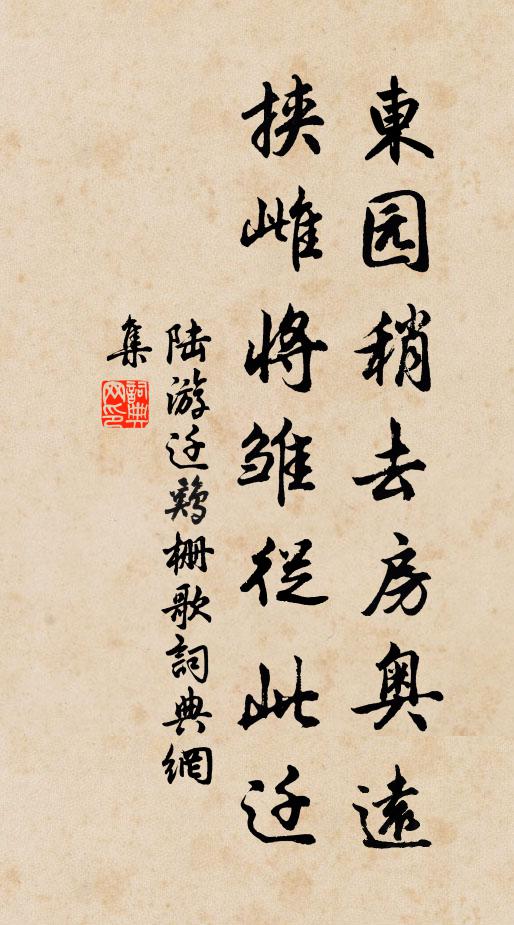 東园稍去房奥遠
挟雌将雏從此迁
陆游迁鷄栅歌詞典網
集
詞典网印